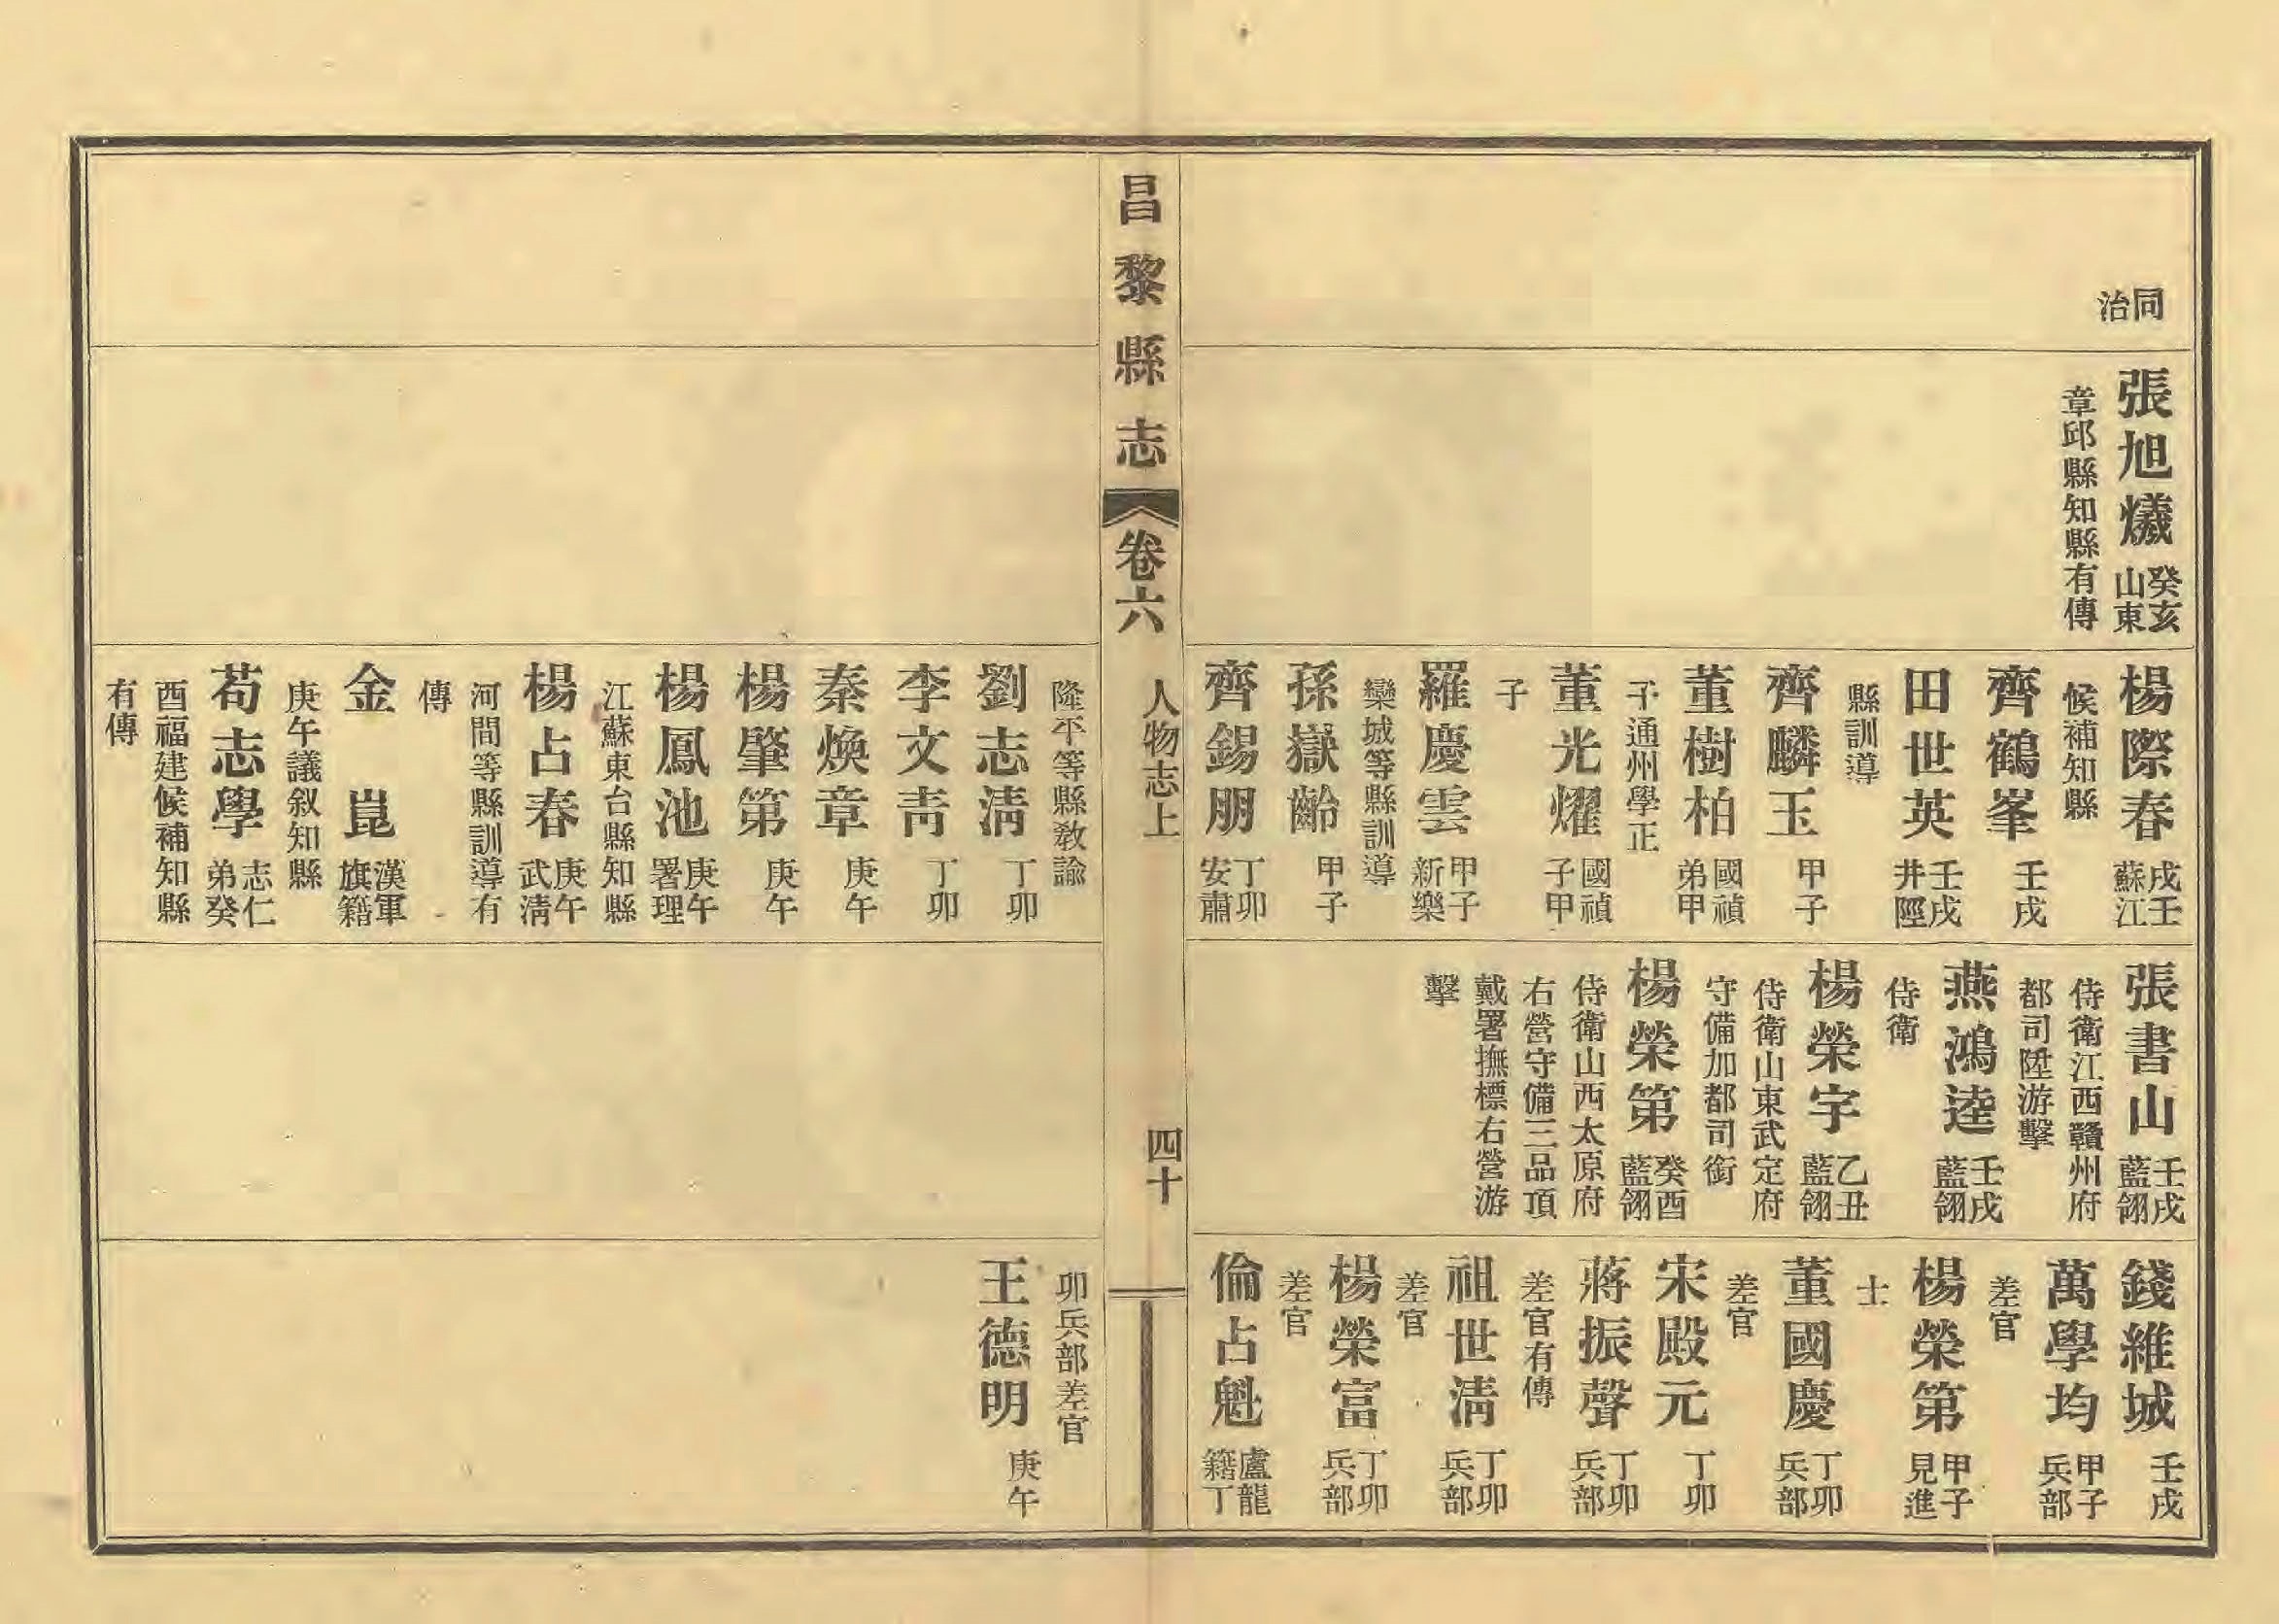 同治
張旭爔 癸亥山東
章邱縣知縣有傳
楊際春 戌壬蘇江
候補知縣
齊鶴峯 壬戌
田世英 壬戌井陘
縣訓導
齊麟玉 甲子
董樹柏 國禎弟甲
子通州學正
董光耀 國禎子甲
子
羅慶雲 甲子新樂
欒城等縣訓導
孫嶽齡 甲子
齊錫朋 丁卯安肅
張書山 壬戌藍翎
侍衛江西贛州府
都司陞游擊
燕鴻逵 壬戌藍翎
侍衛
楊榮宇 乙丑藍翎
侍衛山東武定府
守備加都司銜
楊榮第 癸酉藍翎
侍衛山西太原府
右營守備三品頂
戴署撫標右營游
擊
錢維城 壬戌
萬學均 甲子兵部
差官
楊榮第 甲子見進
士
董國慶 丁卯兵部
差官
宋殿元 丁卯
蔣振聲 丁卯兵部
差官有傳
祖世清 丁卯兵部
差官
楊榮富 丁卯兵部
差官
倫占魁 盧龍籍丁
昌黎縣志 卷六 人物志上 四十
隆平等縣教諭
劉志清 丁卯
李文青 丁卯
秦煥章 庚午
楊肇第 庚午
楊鳳池 庚午署理
江蘇東台縣知縣
楊占春 庚午武清
河間等縣訓導有
傳
金崑 漢軍旗籍
庚午議叙知縣
苟志學 志仁弟癸
酉福建候補知縣
有傳
卯兵部差官
王德明 庚午